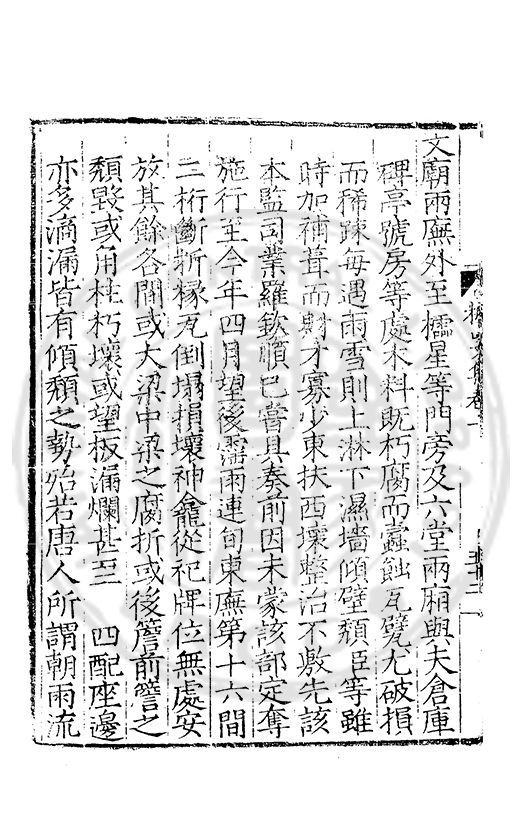 文廟兩廡外至櫺星等門旁及六堂兩廂與夫倉庫
碑亭號房等處木料既朽腐而蠹蝕瓦甓尤破損
而稀踈每遇雨雪則上淋下濕墻傾壁頹臣等雖
時加補葺而財才寡少東扶西壞整治不敷先該
本監司業羅欽順已嘗具奏前因未蒙該部定奪
施行至今年四月望後霪雨連旬東廡第十六間
二桁斷折椽瓦倒塌損壞神龕從祀牌位無處安
放其餘各間或大梁中梁之腐折或後簷前簷之
頹毀或角柱朽壞或望板漏爛甚至　四配座邊
亦多滴漏皆有傾頹之勢殆若唐人所謂朝雨流